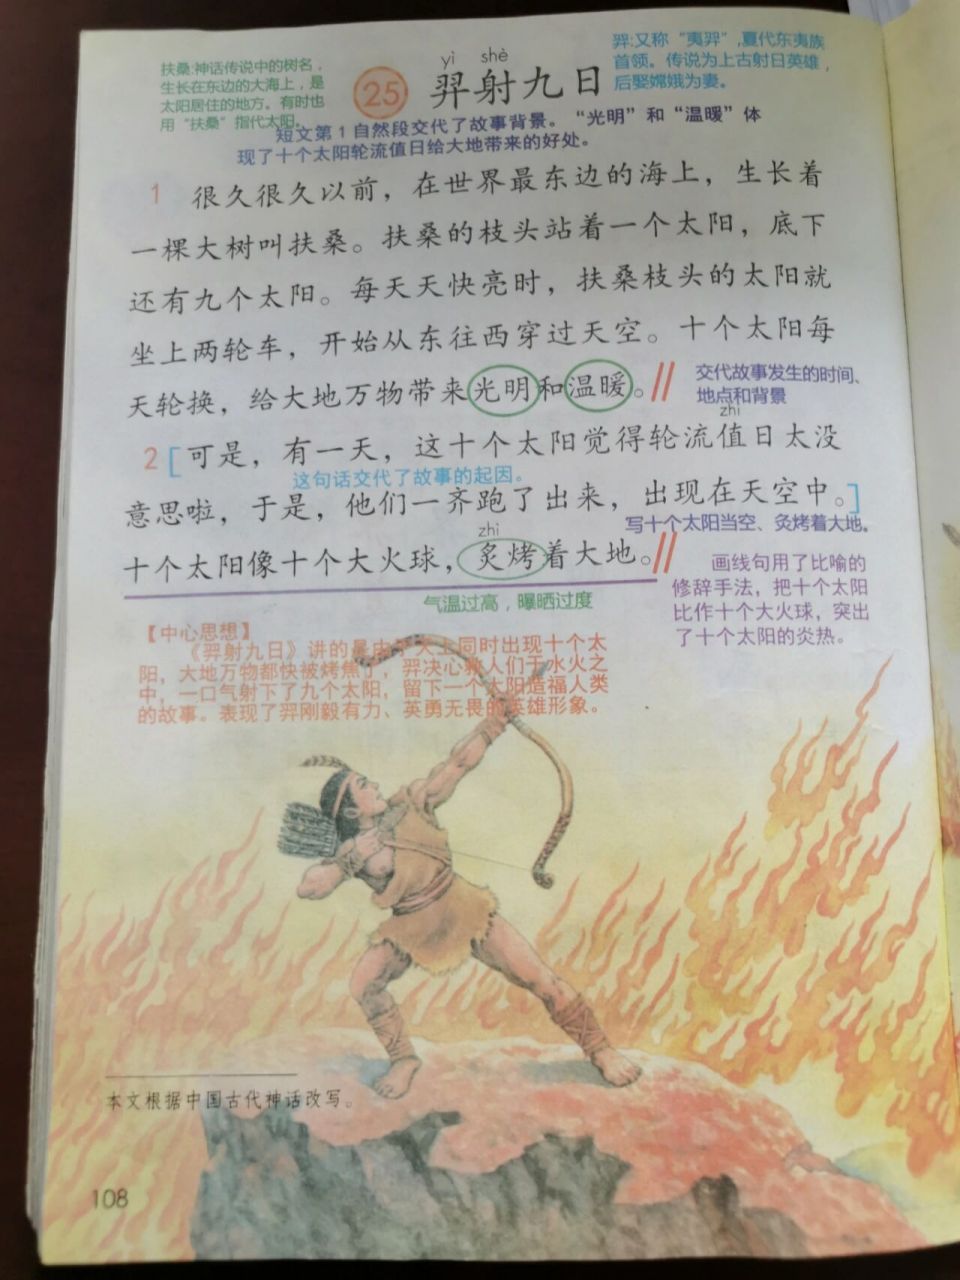 扶桑:神话传说中的树名，
生长在东边的大海上，是
太阳居住的地方。有时也
用“扶桑”指代太阳。
yì shè
25 羿射九日
羿:又称“夷羿”,夏代东夷族
首领。传说为上古射日英雄，
后娶嫦娥为妻。
短文第1自然段交代了故事背景。“光明”和“温暖”体
现了十个太阳轮流值日给大地带来的好处。
1 很久很久以前，在世界最东边的海上，生长着
一棵大树叫扶桑。扶桑的枝头站着一个太阳，底下
还有九个太阳。每天天快亮时，扶桑枝头的太阳就
坐上两轮车，开始从东往西穿过天空。十个太阳每
天轮换，给大地万物带来光明和温暖。
交代故事发生的时间、
地点和背景
zhí
2 [可是，有一天，这十个太阳觉得轮流值日太没
这句话交代了故事的起因。
意思啦，于是，他们一齐跑了出来，出现在天空中。]
写十个太阳当空、炙烤着大地。
zhì
十个太阳像十个大火球，炙烤着大地。
气温过高，曝晒过度
画线句用了比喻的
修辞手法，把十个太阳
比作十个大火球，突出
了十个太阳的炎热。
【中心思想】
《羿射九日》讲的是由于天上同时出现十个太
阳，大地万物都快被烤焦了，羿决心救人们于水火之
中，一口气射下了九个太阳，留下一个太阳造福人类
的故事。表现了羿刚毅有力、英勇无畏的英雄形象。
本文根据中国古代神话改写。
108